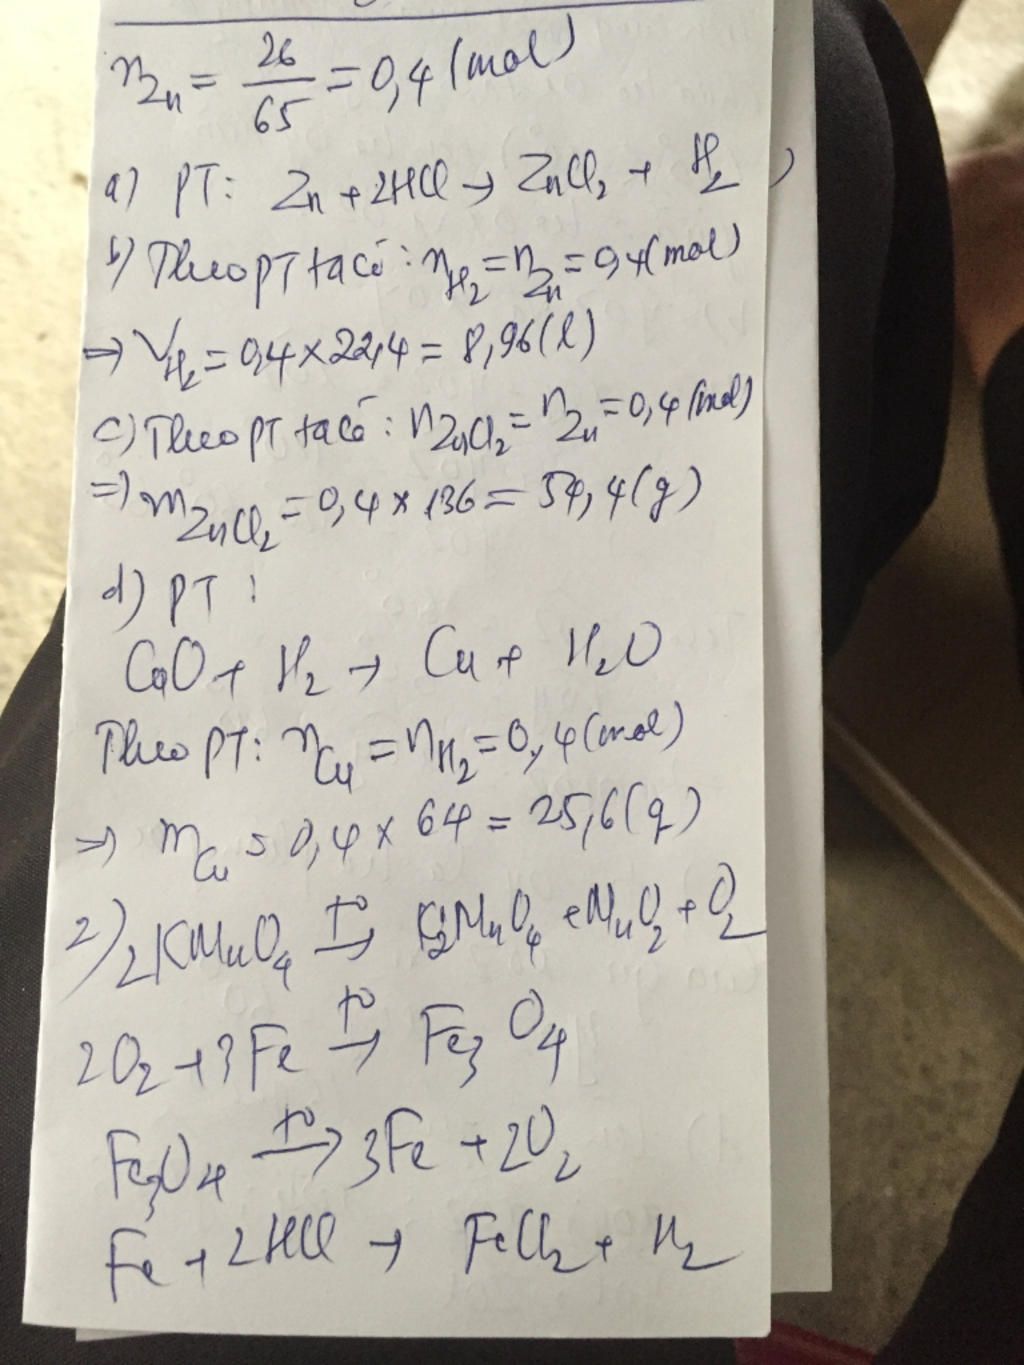 n_Zn = 26/65 = 0,4 (mol)
a) PT: Zn + 2HCl → ZnCl₂ + H₂
b) Theo PT ta có: n_H₂ = n_Zn = 0,4 (mol)
=> V_H₂ = 0,4 × 22,4 = 8,96 (l)
c) Theo PT ta có: n_ZnCl₂ = n_Zn = 0,4 (mol)
=> m_ZnCl₂ = 0,4 × 136 = 54,4 (g)
d) PT:
CuO + H₂ → Cu + H₂O
Theo PT: n_Cu = n_H₂ = 0,4 (mol)
=> m_Cu = 0,4 × 64 = 25,6 (g)
2) 2KMnO₄ t⁰→ K₂MnO₄ + MnO₂ + O₂
2O₂ + 3Fe t⁰→ Fe₃O₄
Fe₃O₄ t⁰→ 3Fe + 2O₂
Fe + 2HCl → FeCl₂ + H₂